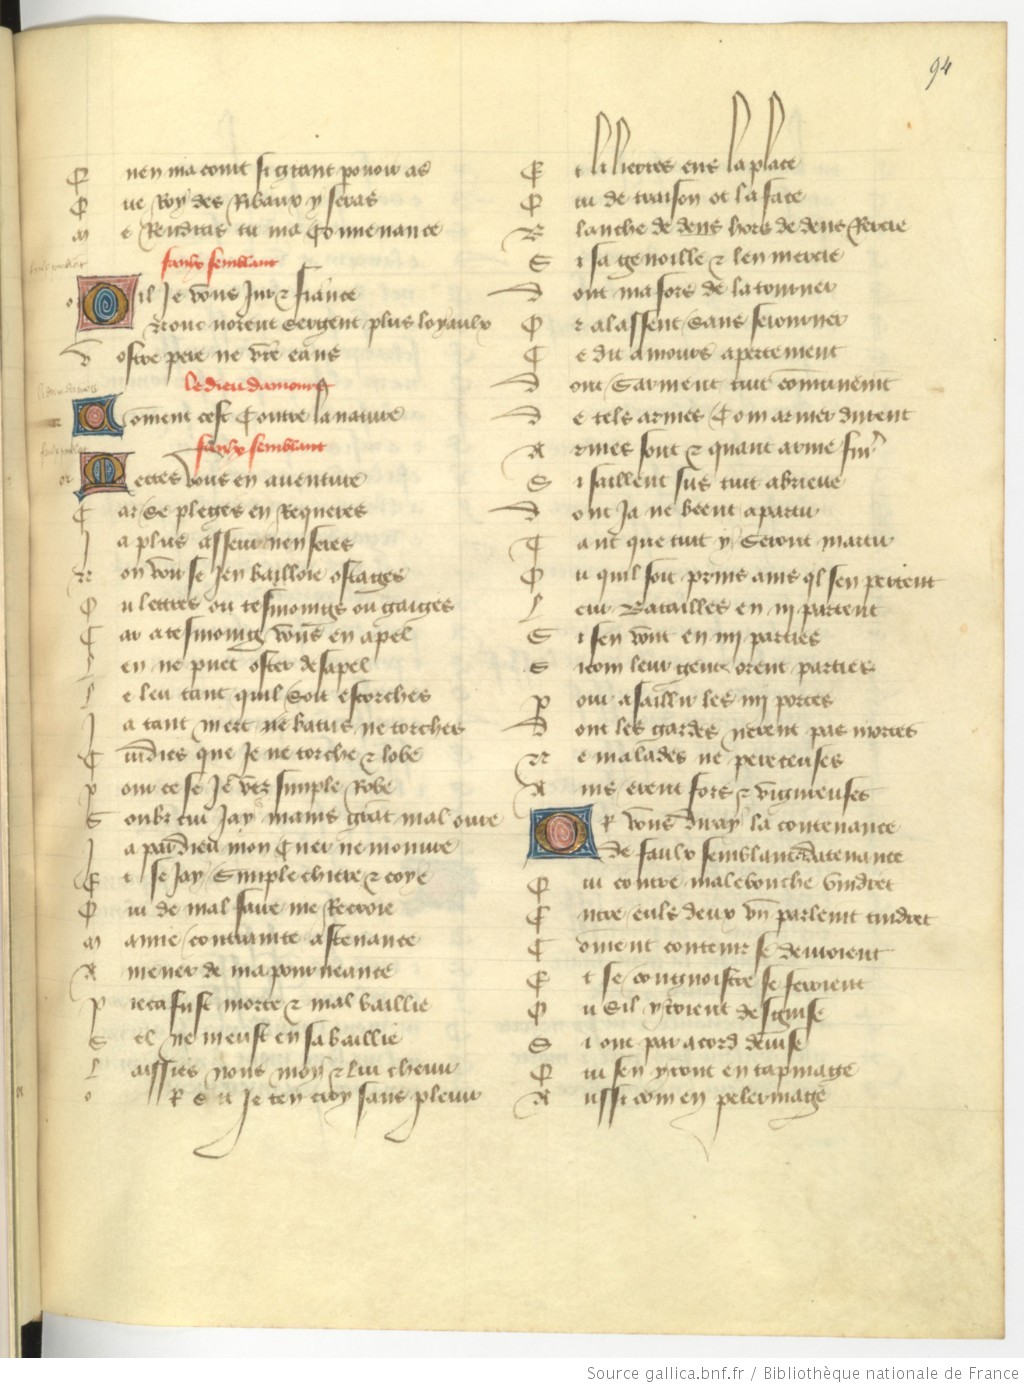 94
Q uen ma court si grant pouoir as
Q ue Roy des Ribaux y seras
M e Rendras tu ma Conuenance
faulx semblant
O il Je vous Jur & fiance
Nonc norent sergent plus loyaulx
V ostre pere ne vre eans
le dieu damours
Coment cest Contre la nature
faulx semblant
Mettes vous en auenture
C ar se pleges en Requeres
J a plus asseur nen seres
N on voir se Jen bailloie ostages
O u lettres ou tesmoings ou gaiges
C ar a tesmoing vous en apel
L en ne puet oster de sa pel
L e leu tant quil soit escorches
J a tant niert ne batus ne torches
C uidies que Je ne torche & lobe
P our ce se Je vez simple Robe
S oubz cui Jay mains grat mal oure
J a par dieu mon Cuer nen mouure
E t se Jay simple chiere & coye
Q ui de mal faire me Recroie
M amie contrainte astenance
A mener de ma pourueance
P ieca fust morte & mal baillie
S el ne meust en sa baillie
L aissies nous moy & lui cheuir
O R s u Je ten croy sans pleuir
E t li lierres ens la place
Q ui de traison ot la face
B lanche dedens hors dedens Nercie
S i sagenoille & len mercie
D ont ma fors de latourner
O r alassent sans seiourner
C e dit amours apertement
D ont sarment tuit communemt
D e tels armes Com armer durent
A rmes sont & quant arme fur
S i saillent sus tuit abrieue
D ont Ja ne beent a partir
T ant que tuit y seront martir
O u quil soit prins ains ql sen partent
L eur Batailles en iiij partent
S i sen vont en iiij parties
S icom leur gent orent parties
P our asaillir les iiij portes
D ont les gardes nerent pas mortes
N e malades ne pereceuses
A ins erent fors & vigureuses
OR vous diray la contenance
De faulx semblant datenance
Q ui contre malebouche vindret
E ntre euls deux vn parlemt tindret
C oment contenir se deuoient
E t se congnoistre se feroient
O u sil yroient desguise
S i ont par acord deuise
Q ui sen yront en tapinage
A ussi com en pelerinage
Source gallica.bnf.fr / Bibliothèque nationale de France